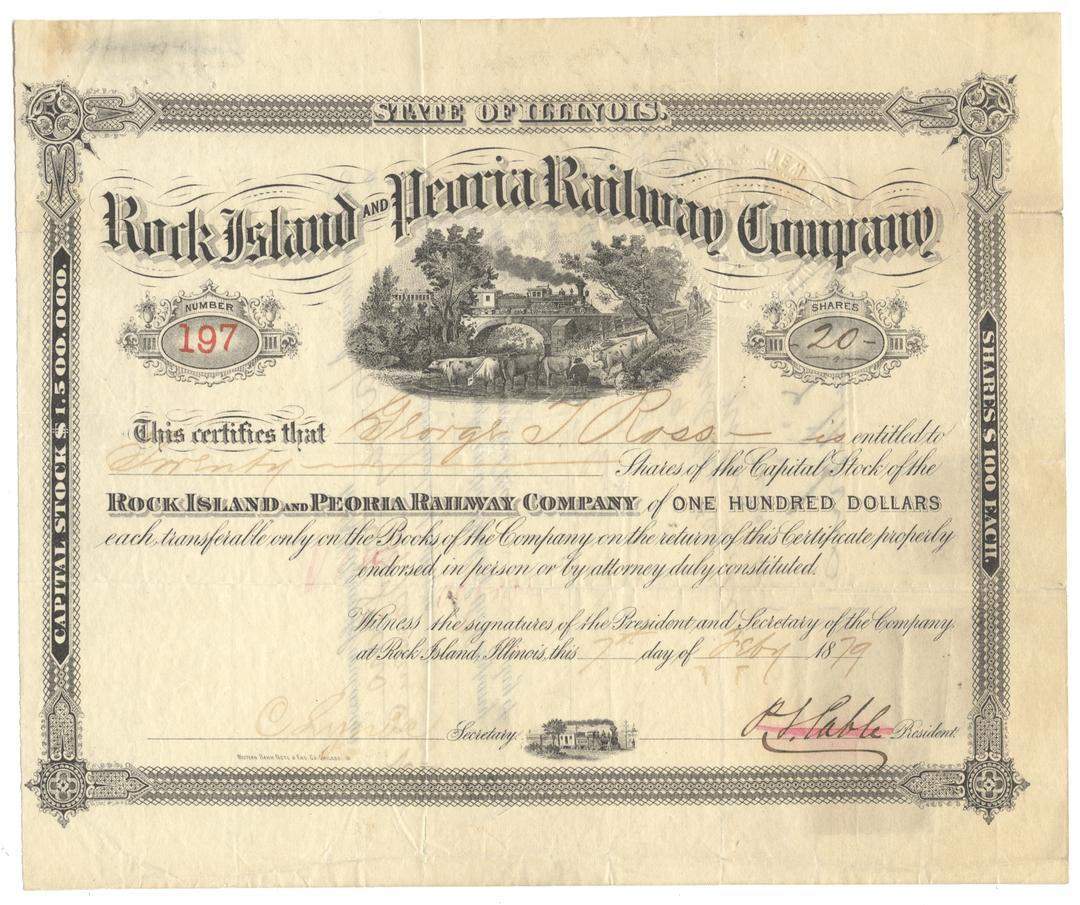 STATE OF ILLINOIS.
Rock Island AND Peoria Railway Company
NUMBER
197
SHARES
-20-
CAPITAL STOCK $1.500.000.
SHARES $100 EACH.
This certifies that George T Ross is entitled to
Twenty Shares of the Capital Stock of the
ROCK ISLAND AND PEORIA RAILWAY COMPANY of ONE HUNDRED DOLLARS
each, transferable only on the Books of the Company on the return of this Certificate properly
endorsed, in person or by attorney duly constituted.
Witness the signatures of the President and Secretary of the Company.
at Rock Island, Illinois, this 7th day of Feby 1879
Secretary. R. R. Cable President.
WESTERN BANK NOTE & ENG. CO. CHICAGO.